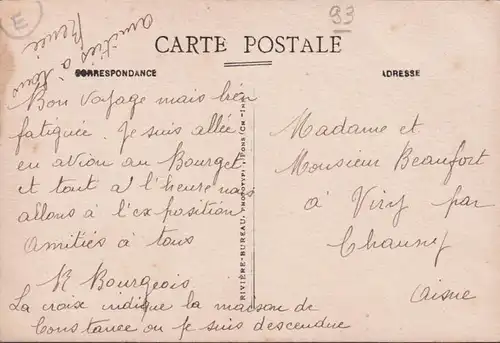 E
93
amitiés à tous
Renée
CARTE POSTALE
CORRESPONDANCE
ADRESSE
Bon voyage mais bien
fatiguée. Je suis allée
en avion au Bourget
et tout à l'heure nous
allons à l'exposition
Amitiés à tous
R Bourgeois
La croix indique la maison de
Constance ou je suis descendue
RIVIÈRE-BUREAU, PHOTOTYPI., PONS (CH-INF.)
Madame et
Monsieur Beaufort
à Viry par
Chauny
Aisne